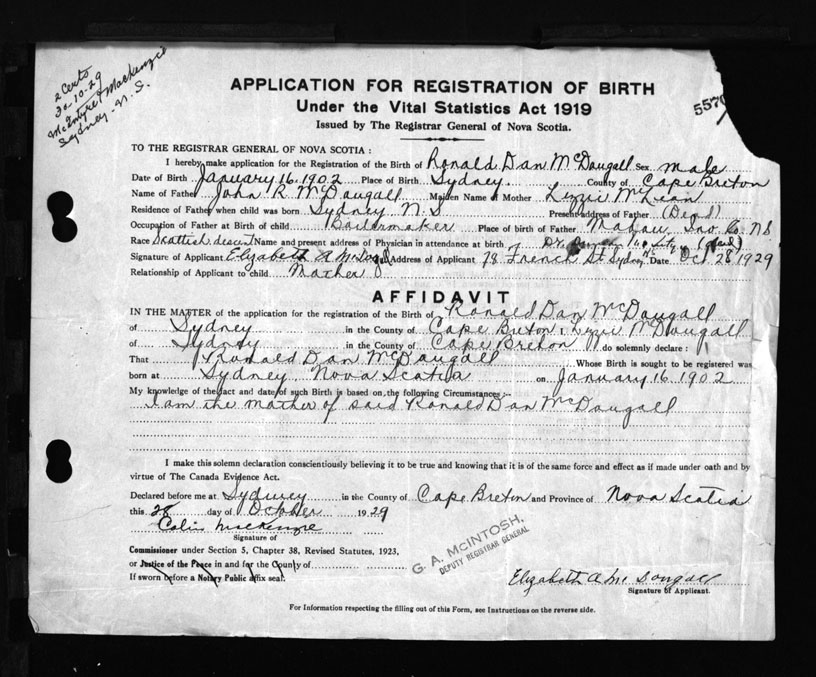 2 Certs
30-10-29
McIntyre & Mackenzie
Sydney - N. S.
5570
APPLICATION FOR REGISTRATION OF BIRTH
Under the Vital Statistics Act 1919
Issued by The Registrar General of Nova Scotia.
TO THE REGISTRAR GENERAL OF NOVA SCOTIA :
I hereby make application for the Registration of the Birth of Ronald Dan McDougall Sex male
Date of Birth January 16. 1902 Place of Birth Sydney. County of Cape Breton
Name of Father John R McDougall Maiden Name of Mother Lizzie McLean
Residence of Father when child was born Sydney N. S Present address of Father (Dead)
Occupation of Father at Birth of child Boilermaker Place of birth of Father Mabou, Inv Co. NS
Race Scottish descent Name and present address of Physician in attendance at birth of Dr
Signature of Applicant Elizabeth A McDougall Address of Applicant 78 French St. Sydney NS Date Oct 28 1929
Relationship of Applicant to child Mother
AFFIDAVIT
IN THE MATTER of the application for the registration of the Birth of Ronald Dan McDougall
of Sydney in the County of Cape Breton, Lizzie McDougall
of Sydney in the County of Cape Breton do solemnly declare :
That Ronald Dan McDougall Whose Birth is sought to be registered was
born at Sydney, Nova Scotia on January 16. 1902
My knowledge of the fact and date of such Birth is based on, the following Circumstances:—
I am the mother of said Ronald Dan McDougall
I make this solemn declaration conscientiously believing it to be true and knowing that it is of the same force and effect as if made under oath and by
virtue of The Canada Evidence Act.
Declared before me at Sydney in the County of Cape Breton and Province of Nova Scotia
this 28 day of October 1929
Colin Mackenzie
Signature of
Commissioner under Section 5, Chapter 38, Revised Statutes, 1923,
or Justice of the Peace in and for the County of
If sworn before a Notary Public affix seal.
G. A. McINTOSH,
DEPUTY REGISTRAR GENERAL
Elizabeth A McDougall
Signature of Applicant.
For Information respecting the filling out of this Form, see Instructions on the reverse side.